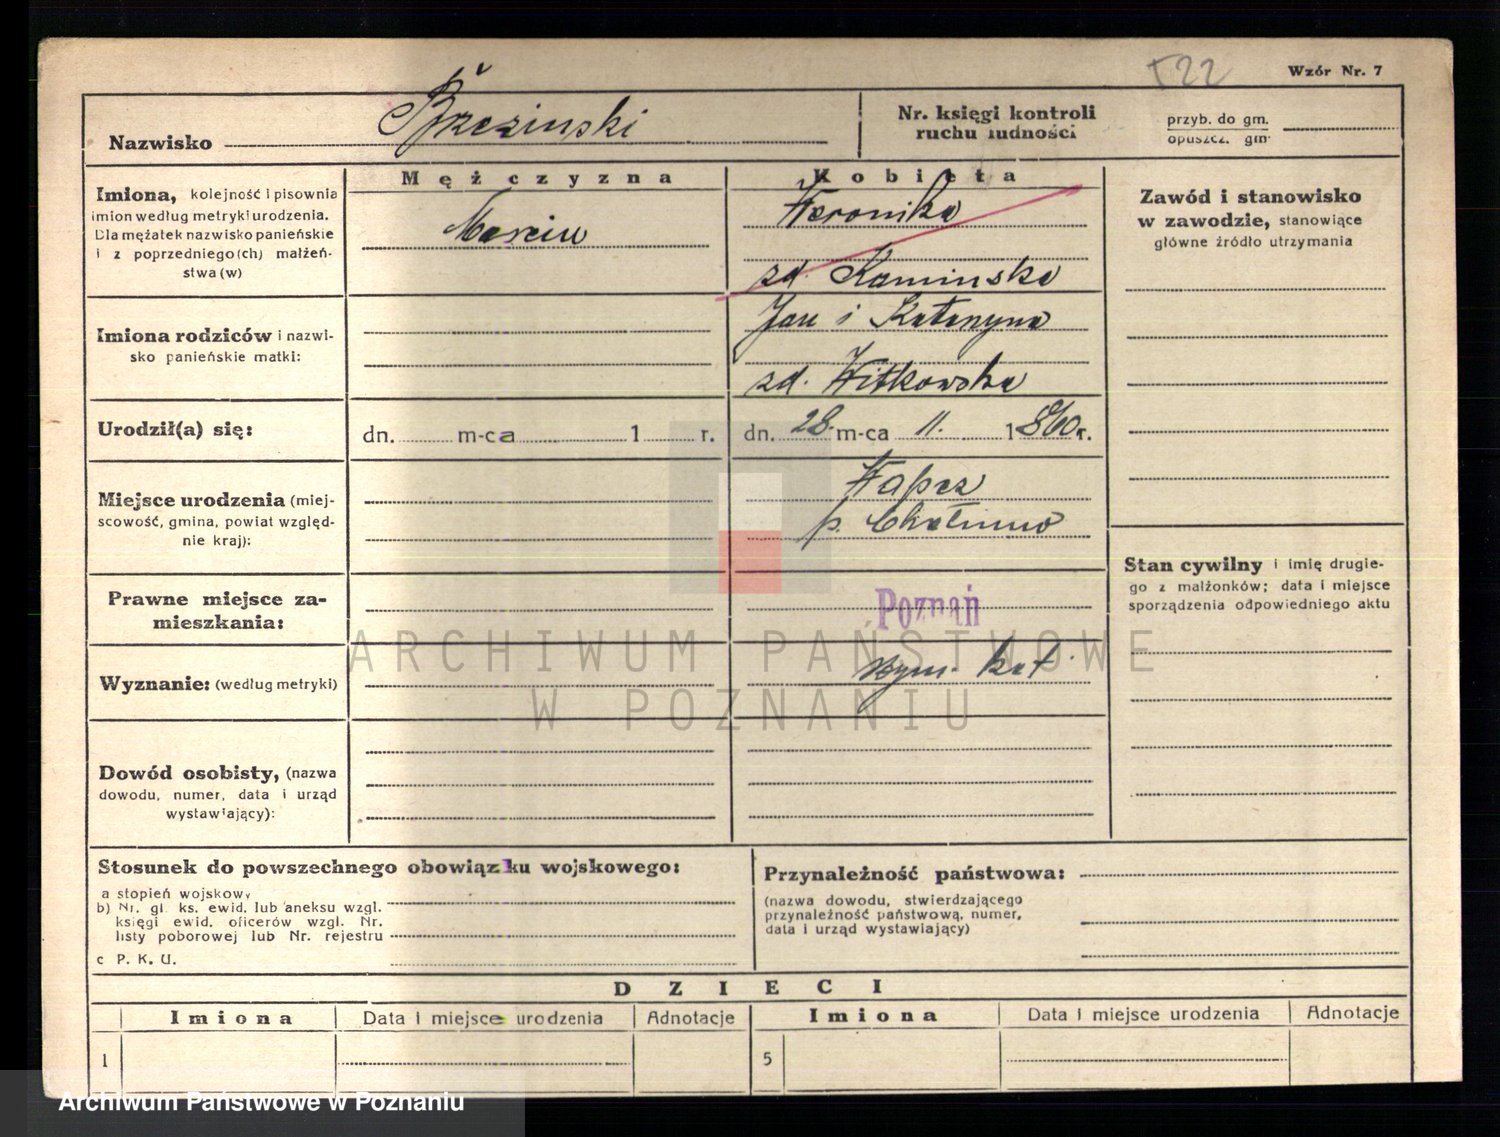 522
Wzór Nr. 7
Nazwisko Brzezinski
Nr. księgi kontroli
ruchu ludności
przyb. do gm.
opuszcz. gm.
Mężczyzna
Kobieta
Imiona, kolejność i pisownia
imion według metryki urodzenia.
Dla mężatek nazwisko panieńskie
i z poprzedniego(ch) małżeń-
stwa (w)
Marcin
Weronika
zd. Kaminska
Zawód i stanowisko
w zawodzie, stanowiące
główne źródło utrzymania
Imiona rodziców i nazwi-
sko panieńskie matki:
Jan i Katarzyna
zd. Witkowska
Urodził(a) się:
dn. m-ca 1 r.
dn. 28. m-ca 11. 1860 r.
Miejsce urodzenia (miej-
scowość, gmina, powiat względ-
nie kraj):
Wapcz
p. Chełmno
Stan cywilny i imię drugie-
go z małżonków; data i miejsce
sporządzenia odpowiedniego aktu
Prawne miejsce za-
mieszkania:
Poznań
ARCHIWUM PAŃSTWOWE
W POZNANIU
Wyznanie: (według metryki)
rzym. kat.
Dowód osobisty, (nazwa
dowodu, numer, data i urząd
wystawiający):
Stosunek do powszechnego obowiązku wojskowego:
a stopień wojskowy
b) Nr. gł. ks. ewid. lub aneksu wzgl.
księgi ewid. oficerów wzgl. Nr.
listy poborowej lub Nr. rejestru
c P. K. U.
Przynależność państwowa:
(nazwa dowodu, stwierdzającego
przynależność państwową, numer,
data i urząd wystawiający)
DZIECI
Imiona
Data i miejsce urodzenia
Adnotacje
Imiona
Data i miejsce urodzenia
Adnotacje
1
5
Archiwum Państwowe w Poznaniu